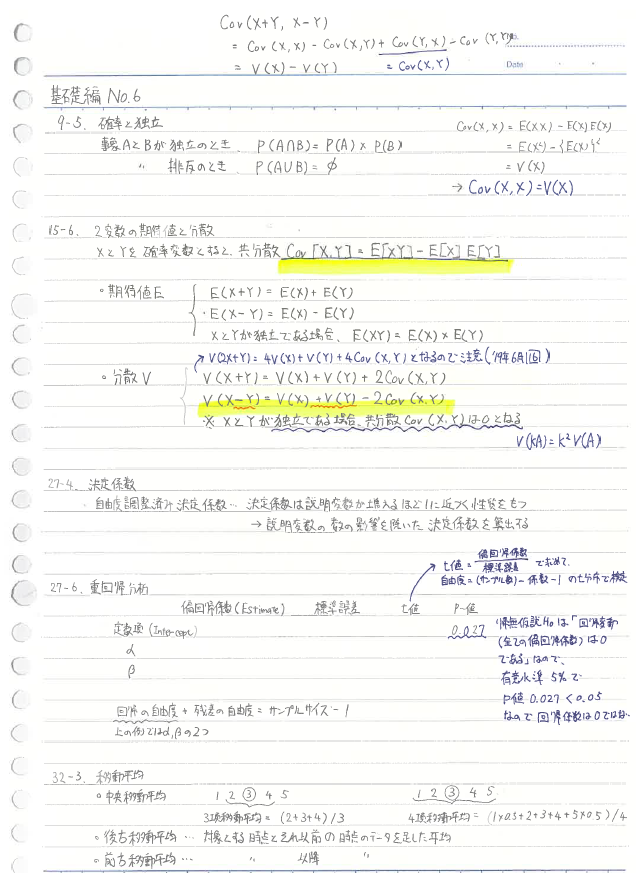 Cov(X+Y, X-Y)
= Cov(X,X) - Cov(X,Y) + Cov(Y,X) - Cov(Y,Y)
= V(X) - V(Y)
= Cov(X,Y)
No.
Date
基礎編 No.6
9-5. 確率と独立
事象AとBが独立のとき. P(A∩B) = P(A) × P(B)
〃 排反のとき. P(A∪B) = Φ
Cov(X,X) = E(XX) - E(X)E(X)
= E(X²) - {E(X)}²
= V(X)
→ Cov(X,X) = V(X)
15-6. 2変数の期待値と分散
XとYを確率変数とすると、共分散 Cov[X,Y] = E[XY] - E[X]E[Y]
・期待値E
E(X+Y) = E(X) + E(Y)
・E(X-Y) = E(X) - E(Y)
XとYが独立である場合、E(XY) = E(X) × E(Y)
V(2X+Y) = 4V(X) + V(Y) + 4Cov(X,Y)となるので注意('19年6月回)
・分散V
V(X+Y) = V(X) + V(Y) + 2Cov(X,Y)
V(X-Y) = V(X) + V(Y) - 2Cov(X,Y)
※ XとYが独立である場合、共分散Cov(X,Y)は0となる
V(kA) = k²V(A)
27-4. 決定係数
・自由度調整済み決定係数… 決定係数は説明変数が増えるほど1に近づく性質をもつ
→ 説明変数の数の影響を除いた決定係数を算出する
t値 = 偏回帰係数/標準誤差 で求めて.
自由度 = (サンプル数) - 係数 - 1 のt分布で検定
27-6. 重回帰分析
偏回帰係数(Estimate) 標準誤差 t値 P-値
定数項(Intercept) 0.027
α
β
帰無仮説H₀は「回帰変動
(全ての偏回帰係数)は0
である」なので、
有意水準5%で
P値 0.027 < 0.05
なので回帰係数は0ではない
回帰の自由度 + 残差の自由度 = サンプルサイズ - 1
上の例ではα,βの2つ
32-3. 移動平均
・中央移動平均 1 2 ③ 4 5 1 2 ③ 4 5
3項移動平均 = (2+3+4)/3 4項移動平均 = (1×0.5+2+3+4+5×0.5)/4
・後方移動平均 … 対象とする時点とそれ以前の時点のデータを足した平均
・前方移動平均 … 〃 以降 〃